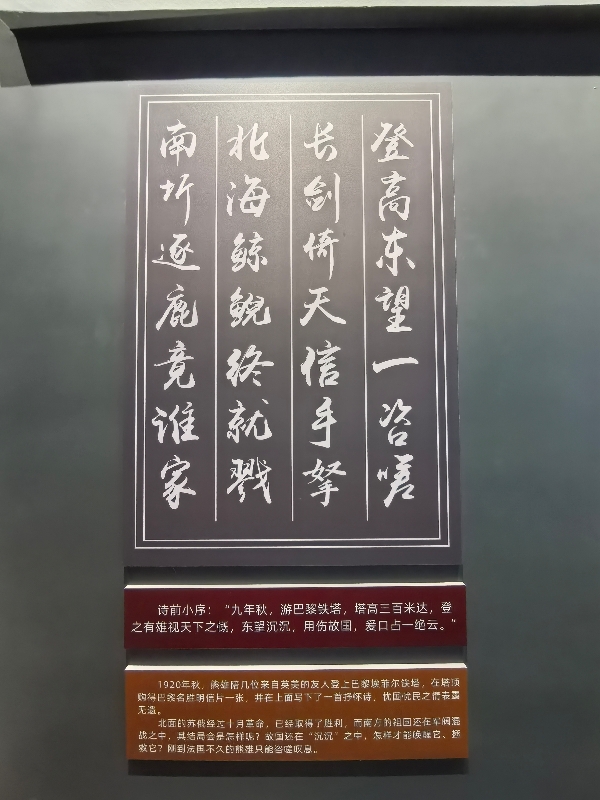 登高东望一咨嗟
长剑倚天信手拏
北海鲸鲵终就戮
南圻逐鹿竟谁家
诗前小序：“九年秋，游巴黎铁塔，塔高三百米达，登
之有雄视天下之慨，东望沉沉，用伤故国，爰口占一绝云。”
1920年秋，熊雄陪几位来自英美的友人登上巴黎埃菲尔铁塔，在塔顶
购得巴黎名胜明信片一张，并在上面写下了一首抒怀诗，忧国忧民之情表露
无遗。
北面的苏俄经过十月革命，已经取得了胜利，而南方的祖国还在军阀混
战之中，其结局会是怎样呢？故国还在“沉沉”之中，怎样才能唤醒它、拯
救它？刚到法国不久的熊雄只能咨嗟叹息。